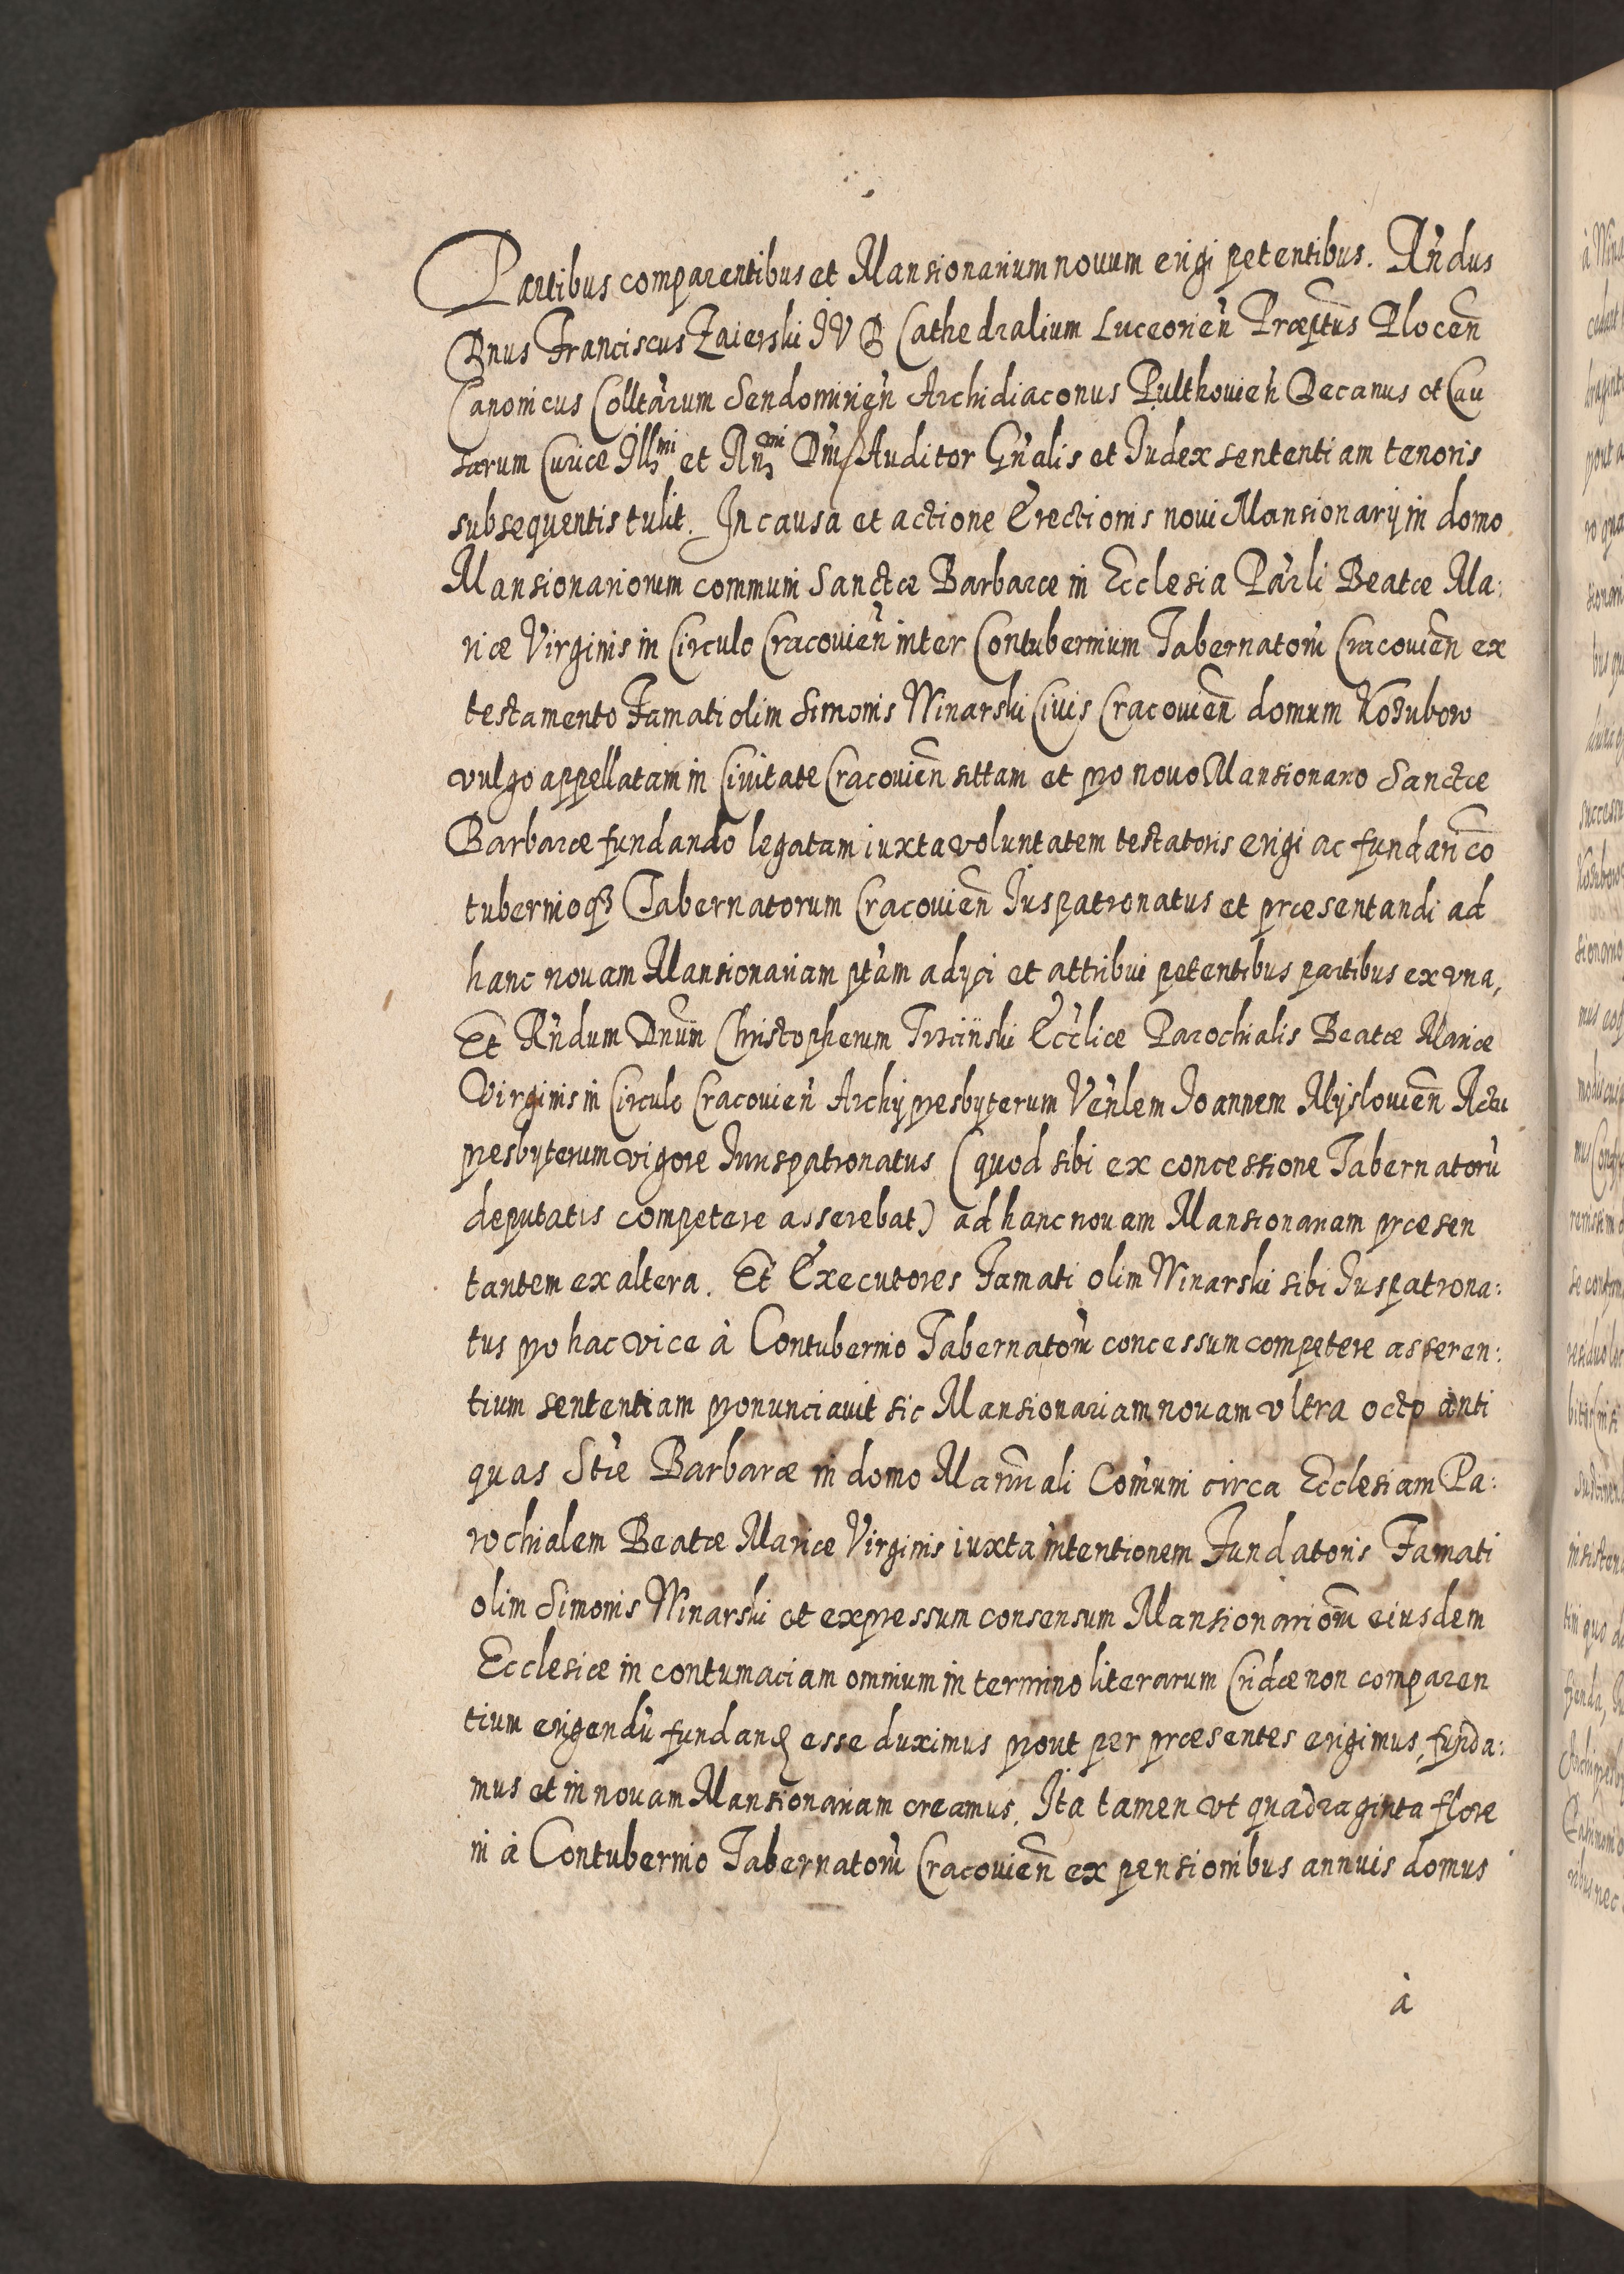 Partibus comparentibus et Mansionarium nouum erigi petentibus. Rn̄dus
Dnus Franciscus Zaierski IVD Cathedralium Luceorien̄ Præptus̄ Plocen̄
Canonicus Colltārum Sendomirien̄ Archidiaconus Pulthouien̄ Decanus et Cau
sarum Curiæ Illmi et Rnmi Dni Auditor Gn̄alis et Iudex sententiam tenoris
subsequentis tulit. In causa et actione Erectionis noui Mansionarij in domo
Mansionariorum communi Sanctæ Barbaræ in Ecclesia Parl̄i Beatæ Ma:
riæ Virginis in Circulo Cracouien̄ inter Contubernium Tabernatorū Cracouien̄ ex
testamento Famati olim Simonis Winarski Ciuis Cracouien̄ domum Kożubow
vulgo appellatam in Ciuitate Cracouien̄ sittam et pro nouo Mansionario Sanctæ
Barbaræ fundando legatam iuxta voluntatem testatoris erigi ac fundari cō
tubernioq3 Tabernatorum Cracouien̄ Iuspatronatus et præsentandi ad
hanc nouam Mansionariam ptām adyci et attribui petentibus partibus ex vna,
Et Rn̄dum Dnūm Christopherum Trzciński Eccl̄iæ Parochialis Beatæ Mariæ
Virginis in Circulo Cracouien̄ Archypresbyterum Ven̄lem Ioannem Myslouien̄ Actu
presbyterum vigore Iurispatronatus (quod sibi ex concessione Tabernatorū
deputatis competere asserebat) ad hanc nouam Mansionariam præsen
tantem ex altera. Et Executores Famati olim Winarski sibi Iuspatrona:
tus pro hac vice à Contubernio Tabernatorū concessum competere asseren:
tium sententiam pronunciauit sic Mansionariam nouam vltra octo anti
quas Stǣ Barbaræ in domo Man̄nali Com̄uni circa Ecclesiam Pa:
rochialem Beatæ Mariæ Virginis iuxta intentionem Fundatoris Famati
olim Simonis Winarski et expressum consensum Mansionariorū eiusdem
Ecclesiæ in contumaciam omnium in termino literarum Cridæ non comparen
tium erigendū fundand esse duximus prout per præsentes erigimus, funda:
mus et in nouam Mansionariam creamus. Ita tamen vt quadraginta flore
ni à Contubernio Tabernatorū Cracouien̄ ex pensionibus annuis domus
à